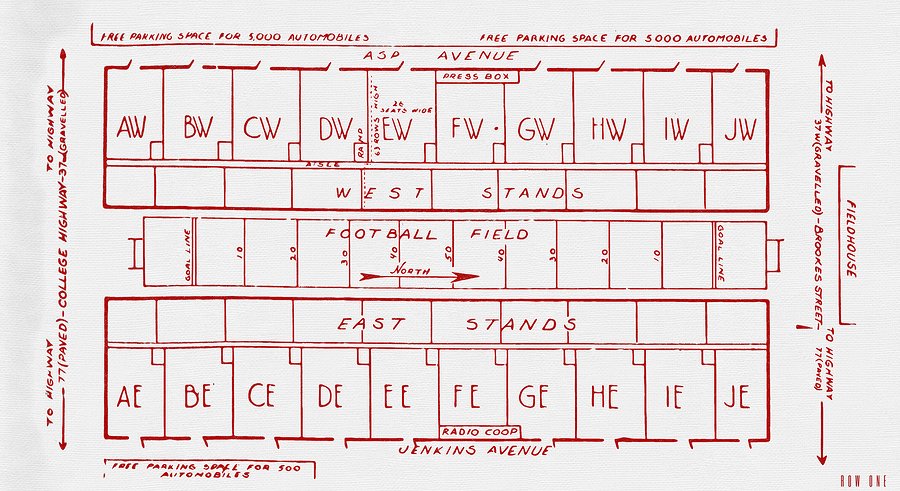 FREE PARKING SPACE FOR 5,000 AUTOMOBILES
FREE PARKING SPACE FOR 5000 AUTOMOBILES
ASP AVENUE
PRESS BOX
AW
BW
CW
DW
RAMP
63 ROWS HIGH
26
SEATS WIDE
EW
FW
GW
HW
IW
JW
AISLE
WEST STANDS
FOOTBALL FIELD
GOAL LINE
10
20
30
40
50
40
30
20
10
GOAL LINE
NORTH
EAST STANDS
AE
BE
CE
DE
EE
FE
GE
HE
IE
JE
RADIO COOP
JENKINS AVENUE
FREE PARKING SPACE FOR 500
AUTOMOBILES
TO HIGHWAY
77 (PAVED)-COLLEGE HIGHWAY-37-(GRAVELLED)
TO HIGHWAY
TO HIGHWAY
37W(GRAVELLED)-BROOKES STREET-
TO HIGHWAY
77(PAVED)
FIELDHOUSE
ROW ONE